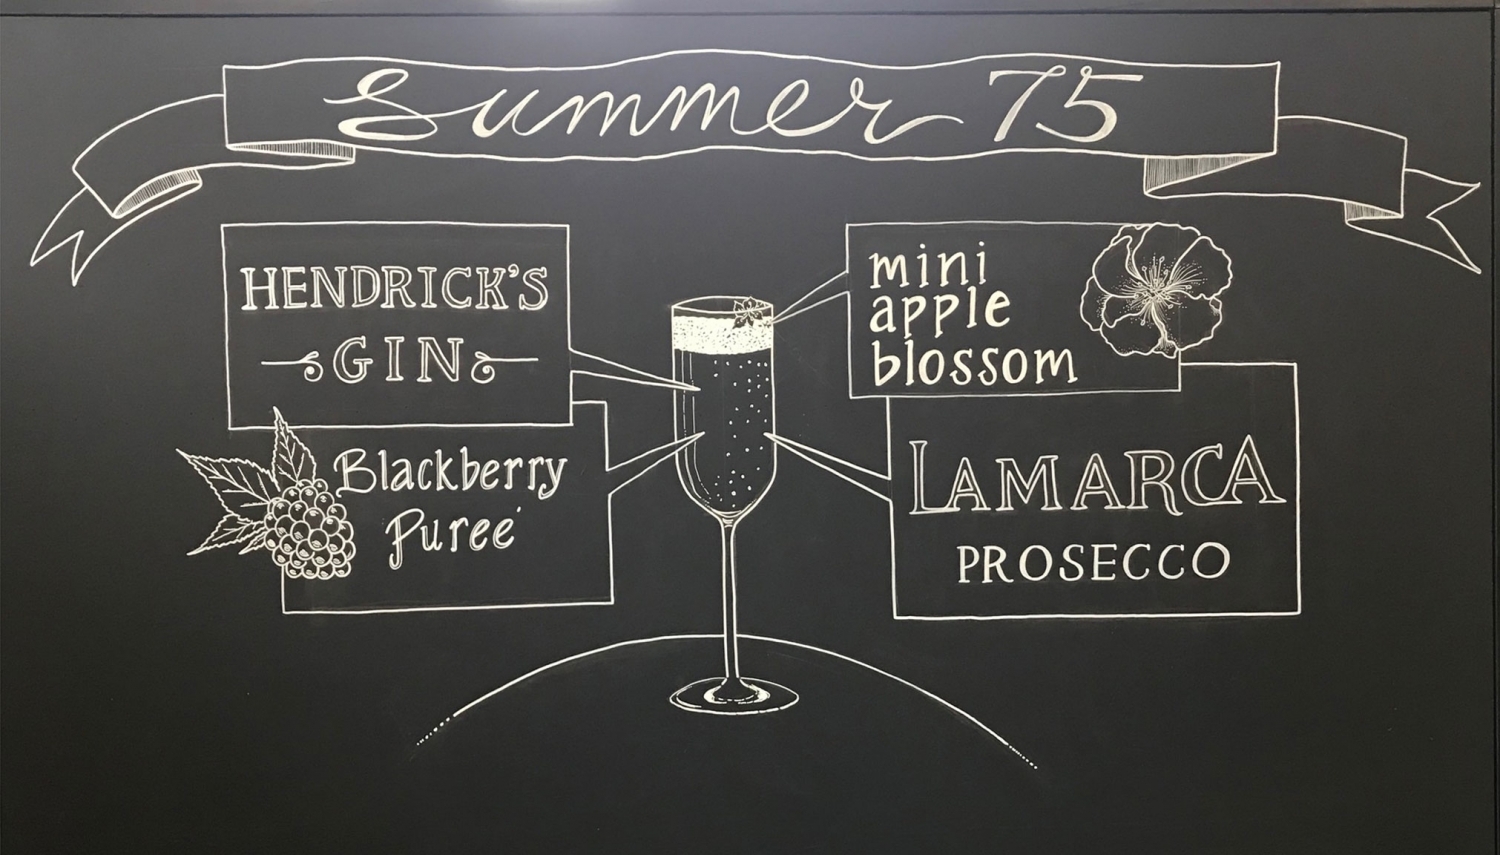 Summer 75
HENDRICK'S
GIN
Blackberry
Pureé
mini
apple
blossom
LAMARCA
PROSECCO